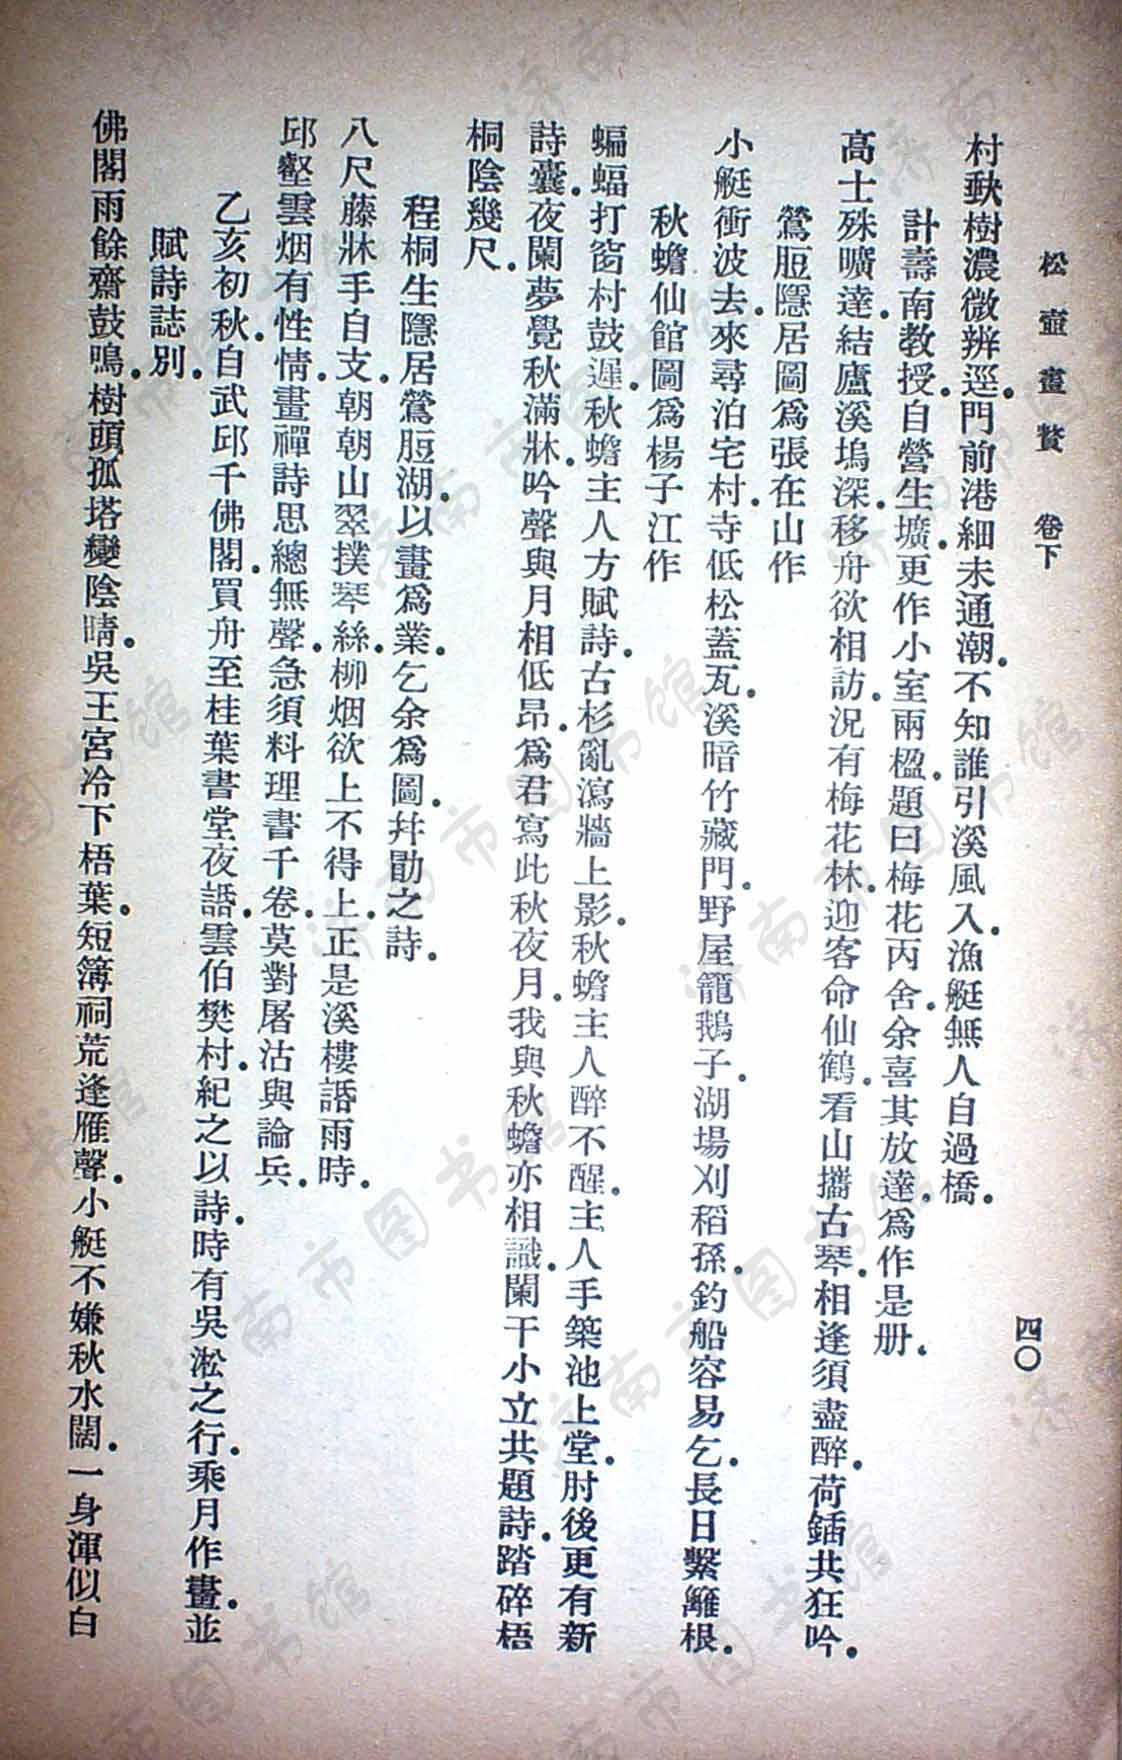 松壺畫贅 卷下 四〇
村缺樹濃微辨逕。門前港細未通潮。不知誰引溪風入。漁艇無人自過橋。
計壽南教授。自營生壙。更作小室兩楹。題曰梅花丙舍。余喜其放達。爲作是册。
高士殊曠達。結廬溪塢深。移舟欲相訪。況有梅花林。迎客命仙鶴。看山攜古琴。相逢須盡醉。荷鍤共狂吟。
鶯脰隱居圖爲張在山作
小艇衝波去。來尋泊宅村。寺低松蓋瓦。溪暗竹藏門。野屋籠鵝子。湖場刈稻孫。釣船容易乞。長日繫籬根。
秋蟾仙館圖爲楊子江作
蝙蝠打窗村鼓遲。秋蟾主人方賦詩。古杉亂瀉牆上影。秋蟾主人醉不醒。主人手築池上堂。肘後更有新
詩囊。夜闌夢覺秋滿牀。吟聲與月相低昂。爲君寫此秋夜月。我與秋蟾亦相識。闌干小立共題詩。踏碎梧
桐陰幾尺。
程桐生隱居鶯脰湖。以畫爲業。乞余爲圖。幷勖之詩。
八尺藤牀手自支。朝朝山翠撲琴絲。柳烟欲上不得上。正是溪樓話雨時。
邱壑雲烟有性情。畫禪詩思總無聲。急須料理書千卷。莫對屠沽與論兵。
乙亥初秋。自武邱千佛閣。買舟至桂葉書堂夜話。雲伯樊村。紀之以詩。時有吳淞之行。乘月作畫。並
賦詩誌別。
佛閣雨餘齋鼓鳴。樹頭孤塔變陰晴。吳王宮冷下梧葉。短簿祠荒逢雁聲。小艇不嫌秋水闊。一身渾似白
濟南市图书馆